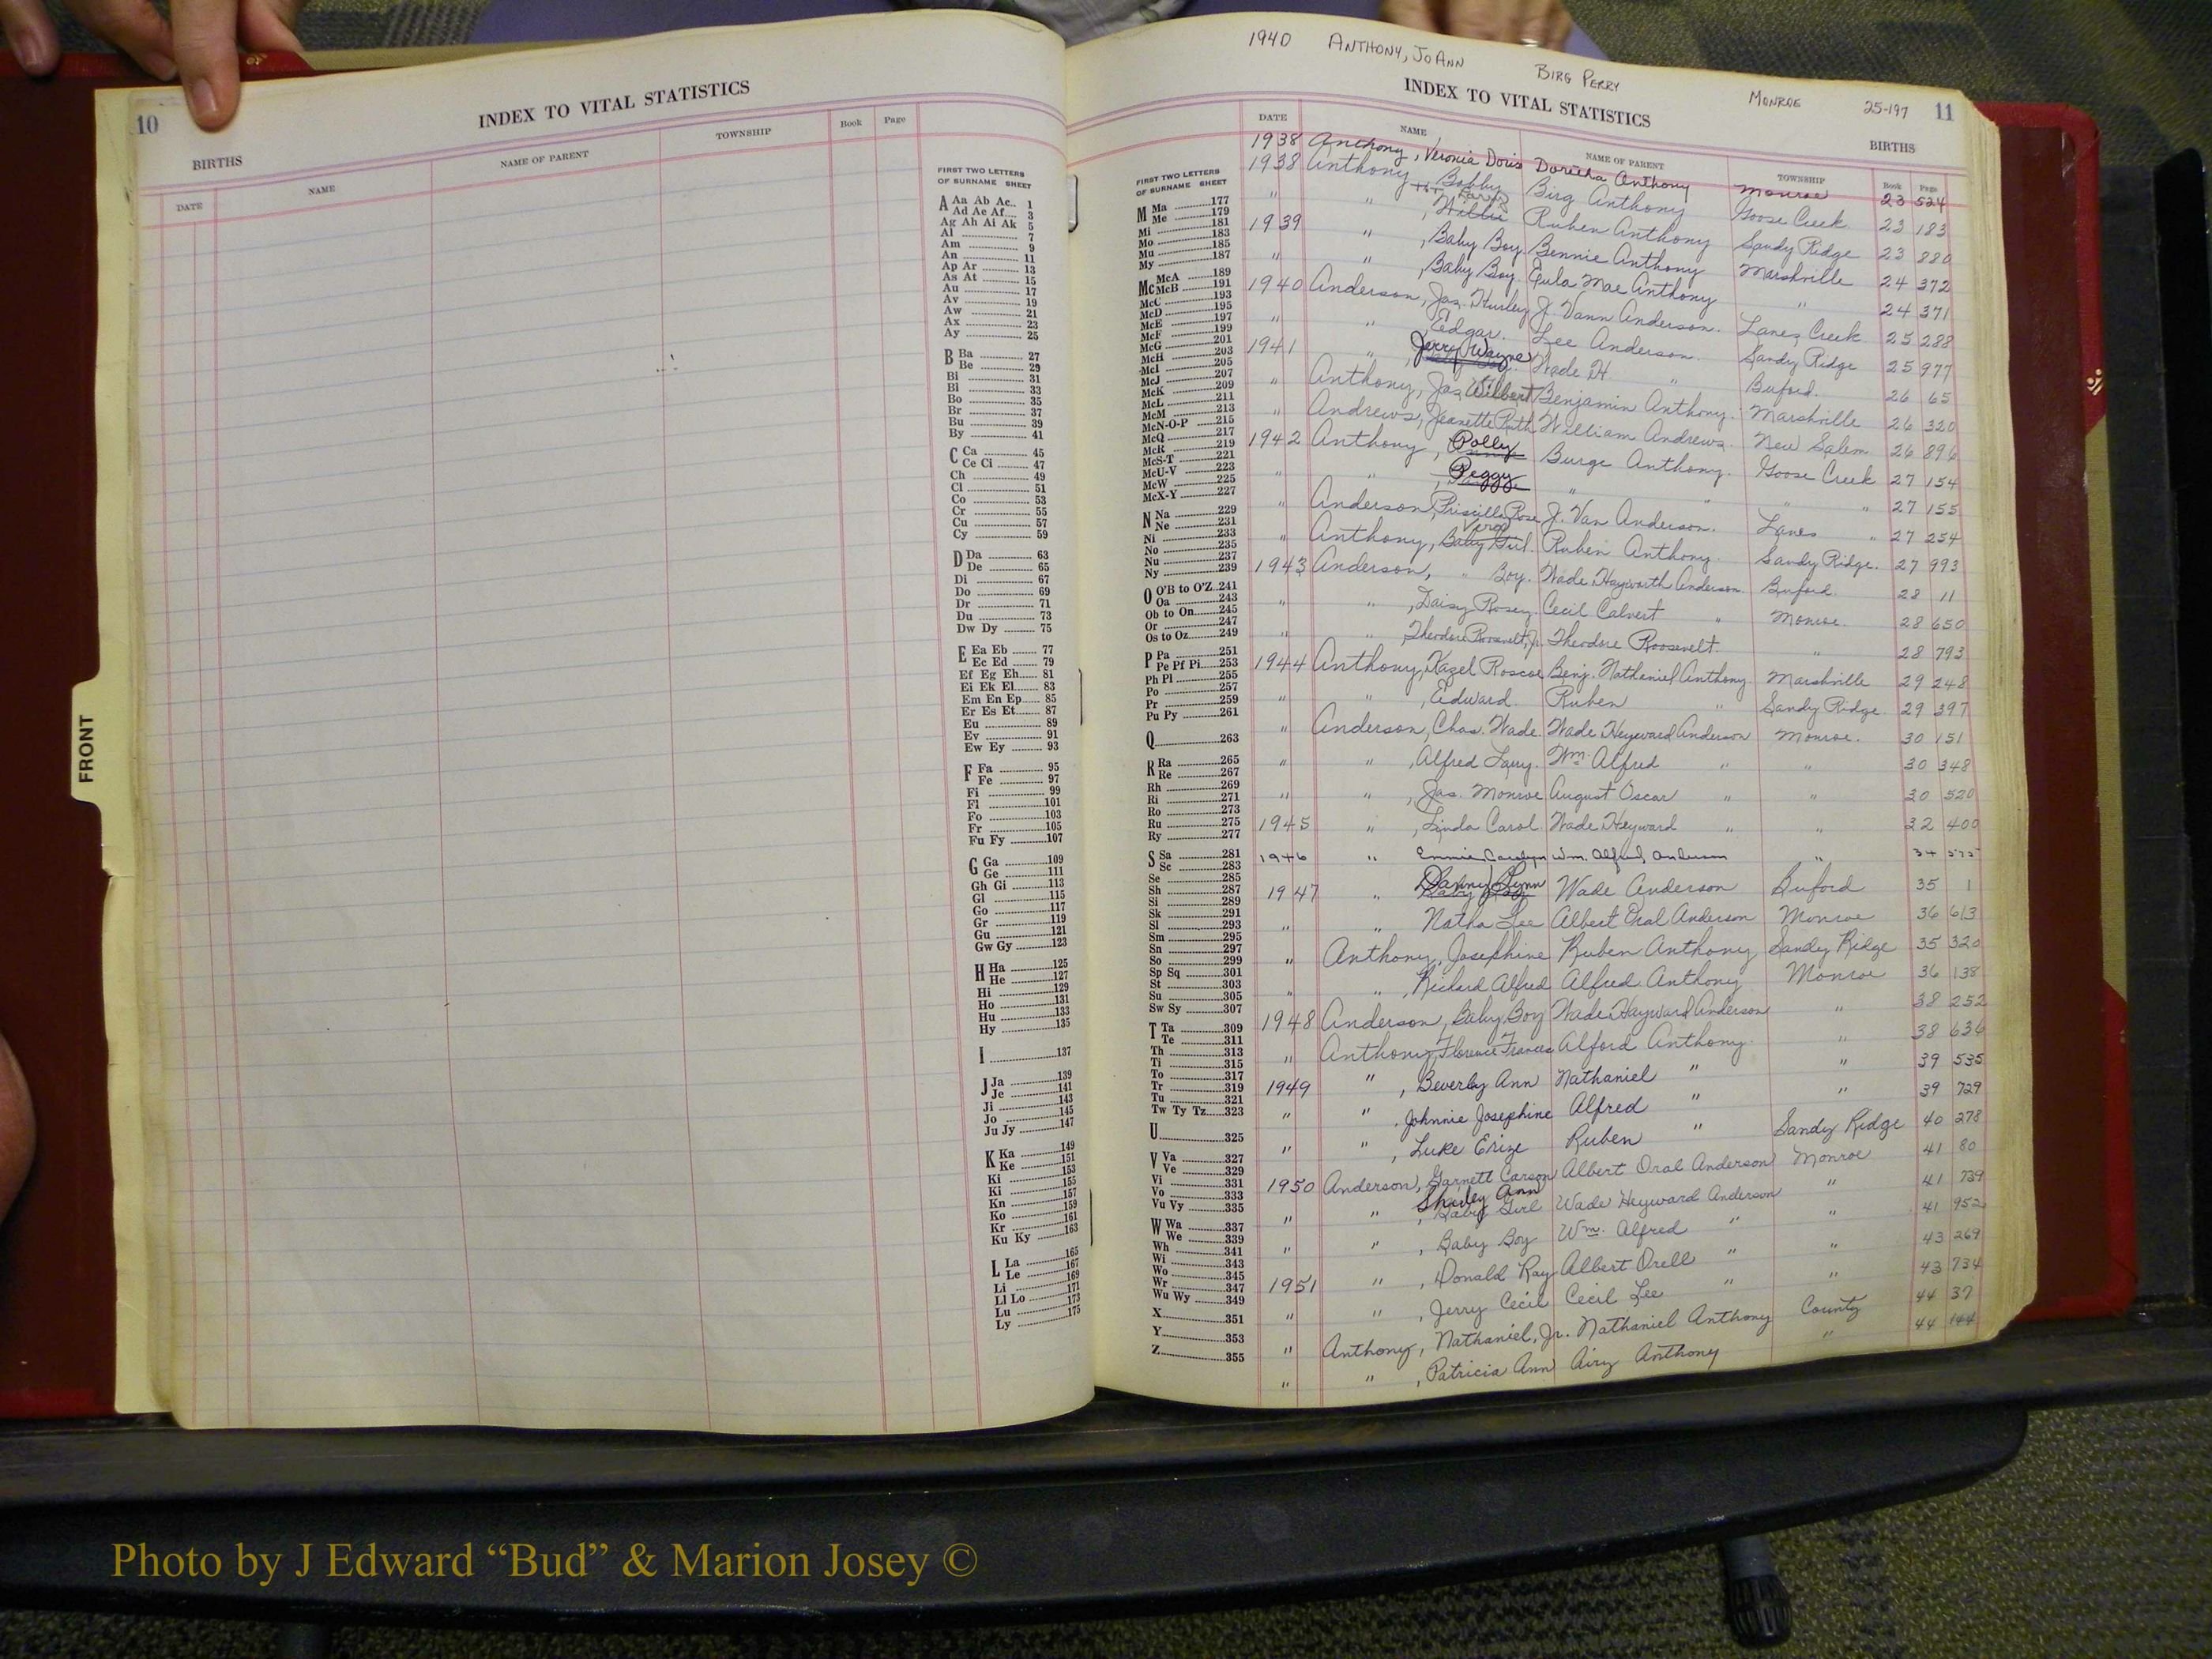 10
INDEX TO VITAL STATISTICS
BIRTHS
DATE NAME NAME OF PARENT TOWNSHIP Book Page
FIRST TWO LETTERS
OF SURNAME SHEET
A Aa Ab Ac.. 1
Ad Ae Af.... 3
Ag Ah Ai Ak 5
Al 7
Am 9
An 11
Ap Ar 13
As At 15
Au 17
Av 19
Aw 21
Ax 23
Ay 25
B Ba 27
Be 29
Bi 31
Bi 33
Bo 35
Br 37
Bu 39
By 41
C Ca 45
Ce Ci 47
Ch 49
Cl 51
Co 53
Cr 55
Cu 57
Cy 59
D Da 63
De 65
Di 67
Do 69
Dr 71
Du 73
Dw Dy 75
E Ea Eb 77
Ec Ed 79
Ef Eg Eh 81
Ei Ek El 83
Em En Ep 85
Er Es Et 87
Eu 89
Ev 91
Ew Ey 93
F Fa 95
Fe 97
Fi 99
Fl 101
Fo 103
Fr 105
Fu Fy 107
G Ga 109
Ge 111
Gh Gi 113
Gl 115
Go 117
Gr 119
Gu 121
Gw Gy 123
H Ha 125
He 127
Hi 129
Ho 131
Hu 133
Hy 135
I 137
J Ja 139
Je 141
Ji 143
Jo 145
Ju Jy 147
K Ka 149
Ke 151
Ki 153
Ki 155
Kn 157
Ko 159
Kr 161
Ku Ky 163
L La 165
Le 167
Li 169
Ll Lo 171
Lu 173
Ly 175
FRONT
1940 ANTHONY, JO ANN BIRG PERRY MONROE 25-197
INDEX TO VITAL STATISTICS
11
BIRTHS
FIRST TWO LETTERS
OF SURNAME SHEET
M Ma 177
Me 179
Mi 181
Mo 183
Mu 185
My 187
Mc McA 189
McB 191
McC 193
McD 195
McE 197
McF 199
McG 201
McH 203
McI 205
McJ 207
McK 209
McL 211
McM 213
McN-O-P 215
McQ 217
McR 219
McS-T 221
McU-V 223
McW 225
McX-Y 227
N Na 229
Ne 231
Ni 233
No 235
Nu 237
Ny 239
O O'B to O'Z 241
Oa 243
Ob to On 245
Or 247
Os to Oz 249
P Pa 251
Pe Pf Pi 253
Ph Pl 255
Po 257
Pr 259
Pu Py 261
Q 263
R Ra 265
Re 267
Rh 269
Ri 271
Ro 273
Ru 275
Ry 277
S Sa 281
Sc 283
Se 285
Sh 287
Si 289
Sk 291
Sl 293
Sm 295
Sn 297
So 299
Sp Sq 301
St 303
Su 305
Sw Sy 307
T Ta 309
Te 311
Th 313
Ti 315
To 317
Tr 319
Tu 321
Tw Ty Tz 323
U 325
V Va 327
Ve 329
Vi 331
Vo 333
Vu Vy 335
W Wa 337
We 339
Wh 341
Wi 343
Wo 345
Wr 347
Wu Wy 349
X 351
Y 353
Z 355
DATE NAME NAME OF PARENT TOWNSHIP Book Page
1938 Anthony, Veronia Doris Doretha Anthony Monroe 23 524
1938 Anthony, Bobby Birg Anthony Goose Creek 23 183
" " , Willie Ruben Anthony Sandy Ridge 23 880
1939 " , Baby Boy Bennie Anthony Marshville 24 372
" " , Baby Boy. Eula Mae Anthony " 24 371
1940 Anderson, Jas. Hurley J. Vann Anderson. Lanes Creek 25 288
" " , Edgar. Lee Anderson. Sandy Ridge 25 977
1941 " , Jerry Wayne Wade H. " Buford. 26 65
" Anthony, Jas. Wilbert Benjamin Anthony. Marshville 26 320
" Andrews, Jeanette Ruth William Andrews. New Salem 26 896
1942 Anthony, Polly Burge Anthony. Goose Creek 27 154
" " , Peggy " " " " 27 155
" Anderson, Priscilla Rose J. Van Anderson. Lanes " 27 254
" Anthony, Baby Girl. Vera Ruben Anthony. Sandy Ridge. 27 993
1943 Anderson, " Boy. Wade Hayworth Anderson. Buford. 28 11
" " , Daisy Rosey. Cecil Calvert " Monroe. 28 650
" " , Theodore Roosevelt, Jr. Theodore Roosevelt. " 28 793
1944 Anthony, Hazel Roscoe Benj. Nathaniel Anthony. Marshville 29 248
" " , Edward. Ruben " Sandy Ridge. 29 397
" Anderson, Chas. Wade Wade Heyward Anderson Monroe. 30 151
" " , Alfred Larry. Wm. Alfred " " 30 348
" " , Jas. Monroe August Oscar " " 30 520
1945 " , Linda Carol Wade Heyward " " 32 400
1946 " Emmie Carolyn Wm. Alfred Anderson " 34
1947 " Danny Lynn Wade Anderson Buford 35 1
" " Natha Lee Albert Oral Anderson Monroe 36 613
" Anthony, Josephine Ruben Anthony Sandy Ridge 35 320
" " , Richard Alfred Alfred Anthony Monroe 36 138
1948 Anderson, Baby Boy Wade Hayward Anderson " 38 252
" Anthony, Florence Frances Alford Anthony " 38 636
1949 " , Beverly Ann Nathaniel " " 39 535
" " , Johnnie Josephine Alfred " " 39 729
" " , Luke Erize Ruben " Sandy Ridge 40 278
1950 Anderson, Garnett Carson Albert Oral Anderson Monroe 41 80
" " , Baby Girl Shirley Ann Wade Heyward Anderson " 41 739
" " , Baby Boy Wm. Alfred " " 41 952
1951 " , Donald Ray Albert Orell " " 43 269
" " , Jerry Cecil Cecil Lee " " 43 734
" Anthony, Nathaniel, Jr. Nathaniel Anthony County 44 37
" " , Patricia Ann Airy Anthony " 44 144
Photo by J Edward “Bud” & Marion Josey ©